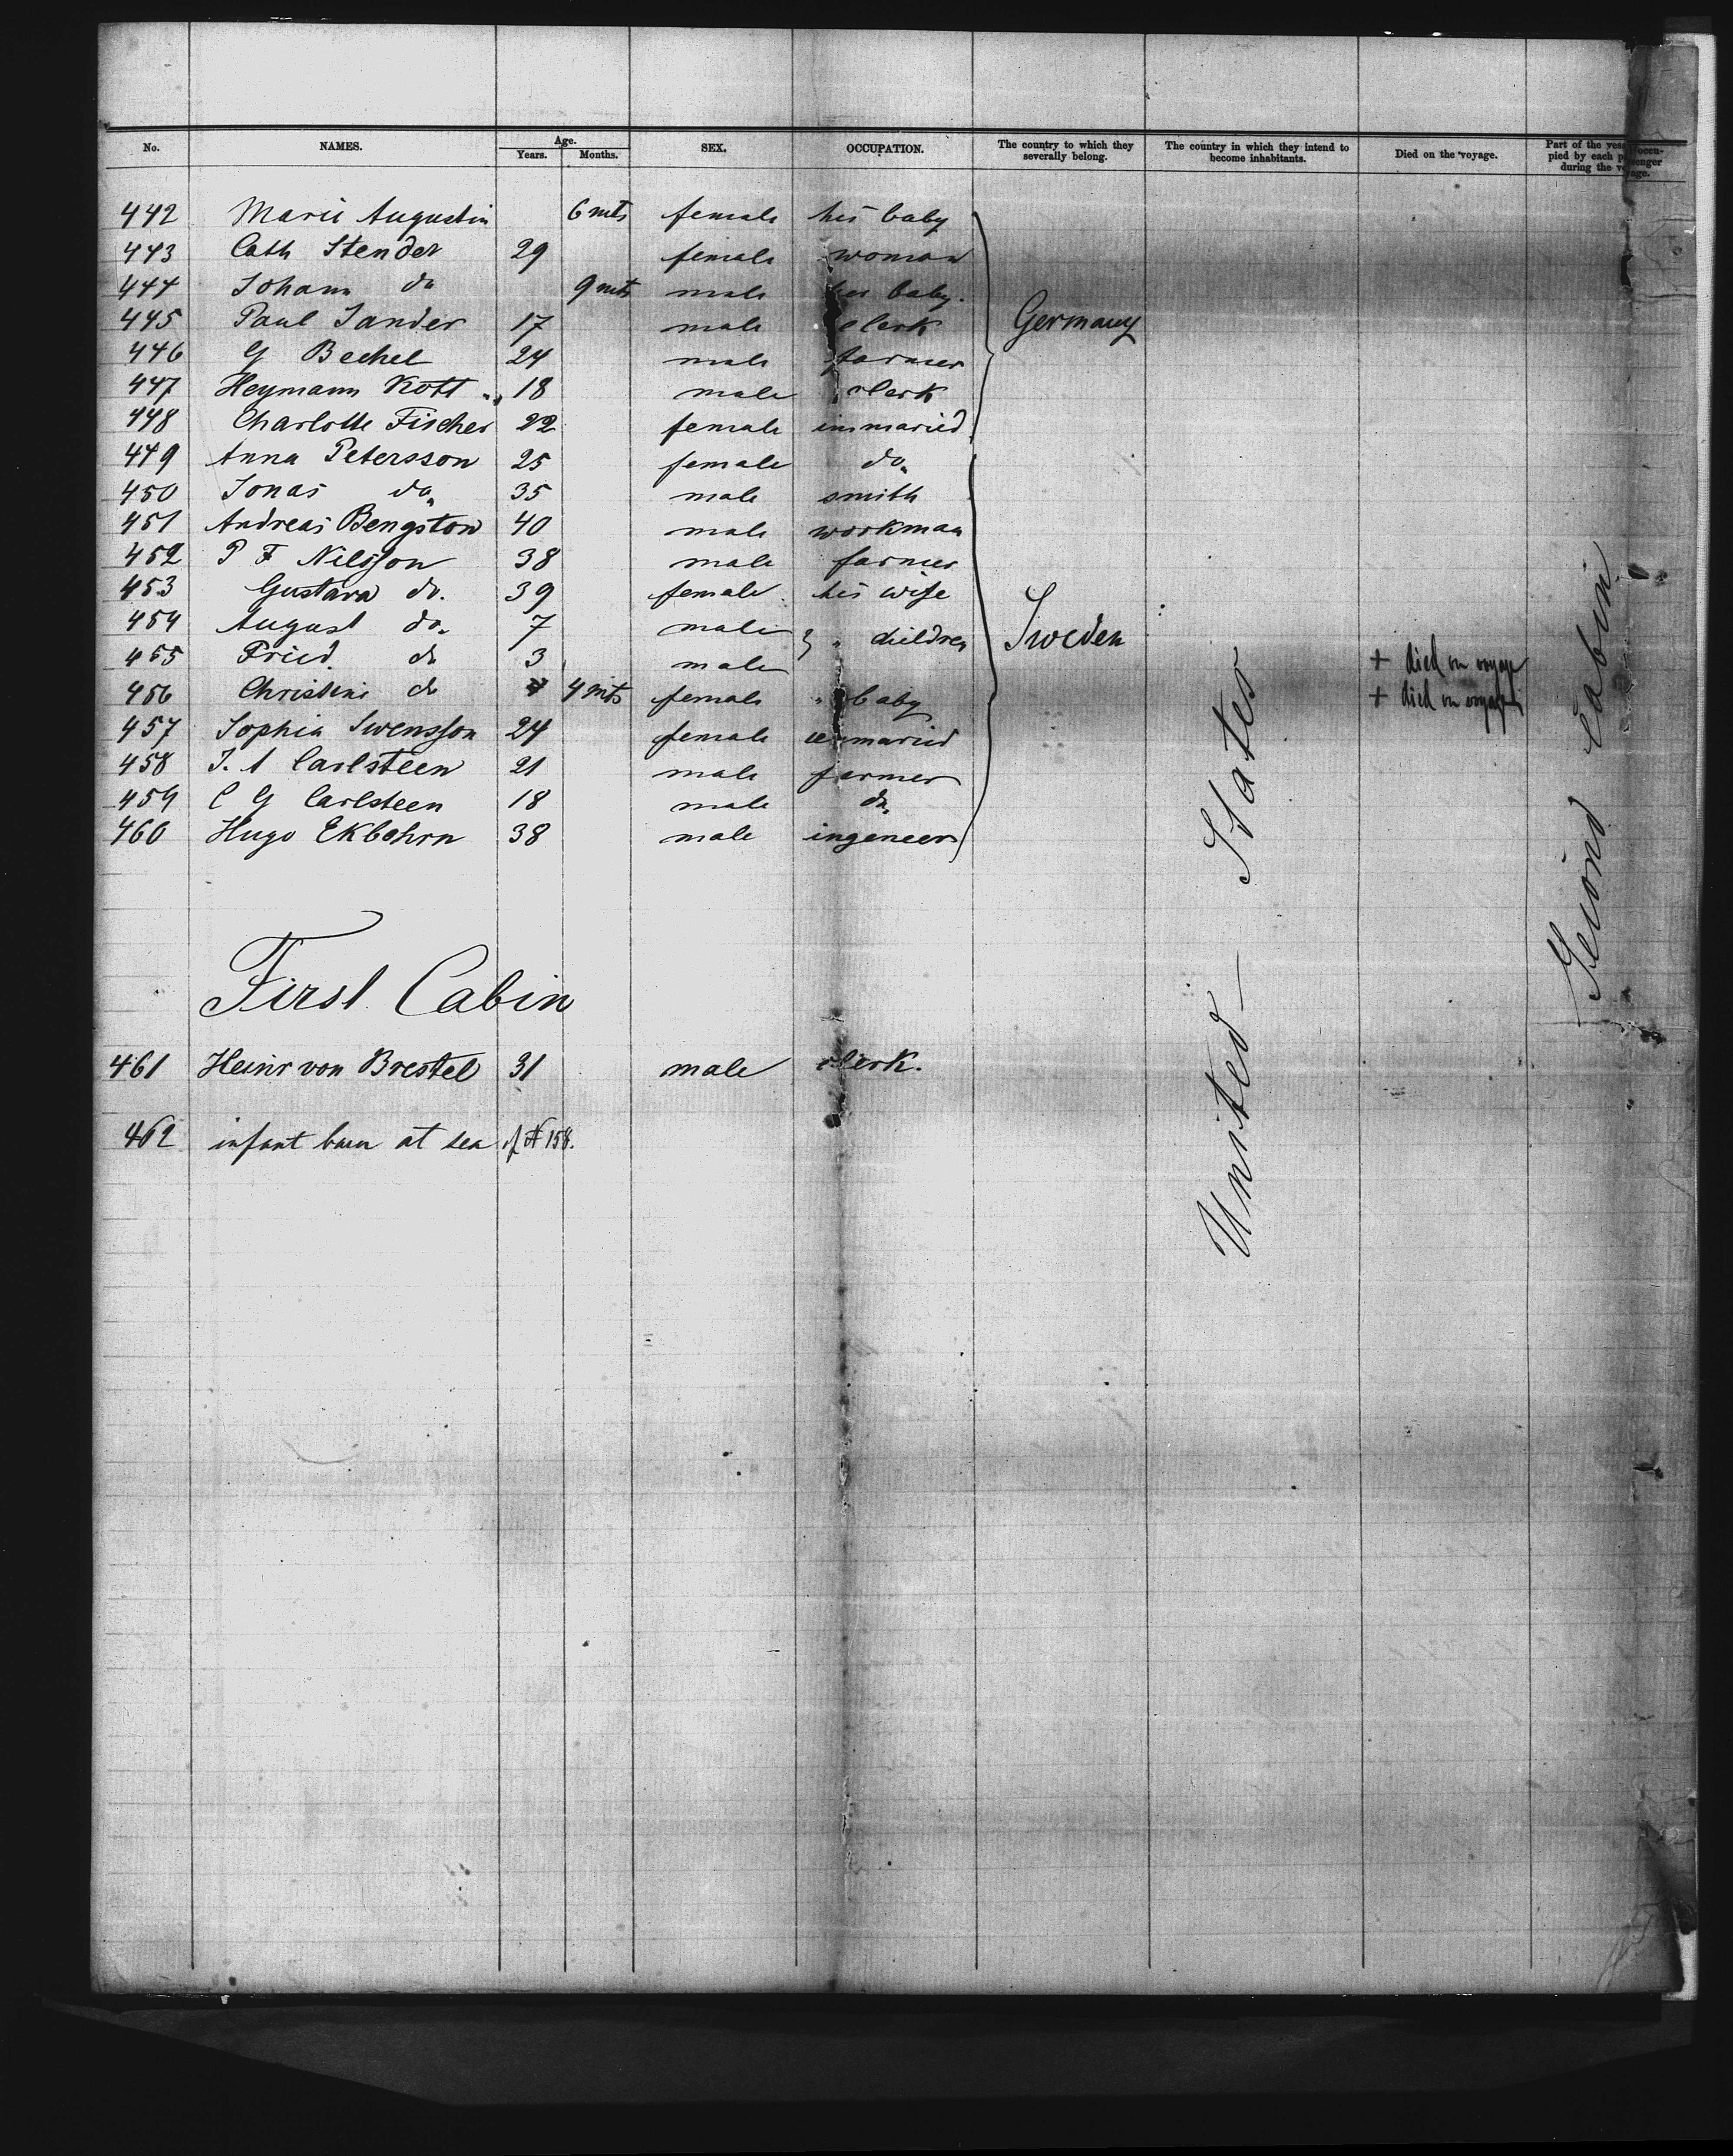 No. NAMES. Age. Years. Months. SEX. OCCUPATION. The country to which they severally belong. The country in which they intend to become inhabitants. Died on the voyage. Part of the vessel occupied by each passenger during the voyage.
442 Marie Augustin 6 mts female his baby
443 Cath Stender 29 female woman
444 Johann do 9 mts male her baby.
445 Paul Sander 17 male clerk Germany
446 G Bechel 24 male farmer
447 Heymann Kott 18 male clerk
448 Charlotte Fischer 22 female inmaried
449 Anna Petersson 25 female do
450 Jonas do 35 male smith
451 Andreas Bengston 40 male workman
452 P F Nilsson 38 male farmer
453 Gustava do. 39 female his wife
454 August do. 7 male } " children Sweden
455 Fried. do 3 male + died on voyage
456 Christine do 4 mts female " baby + died on voyage
457 Sophia Swensson 24 female unmaried
458 J. A Carlsteen 21 male farmer
459 C G Carlsteen 18 male do
460 Hugo Ekbohrn 38 male ingeneer
United States
Second Cabin
First Cabin
461 Heinr von Brestel 31 male clerk.
462 infant born at sea of N 158.